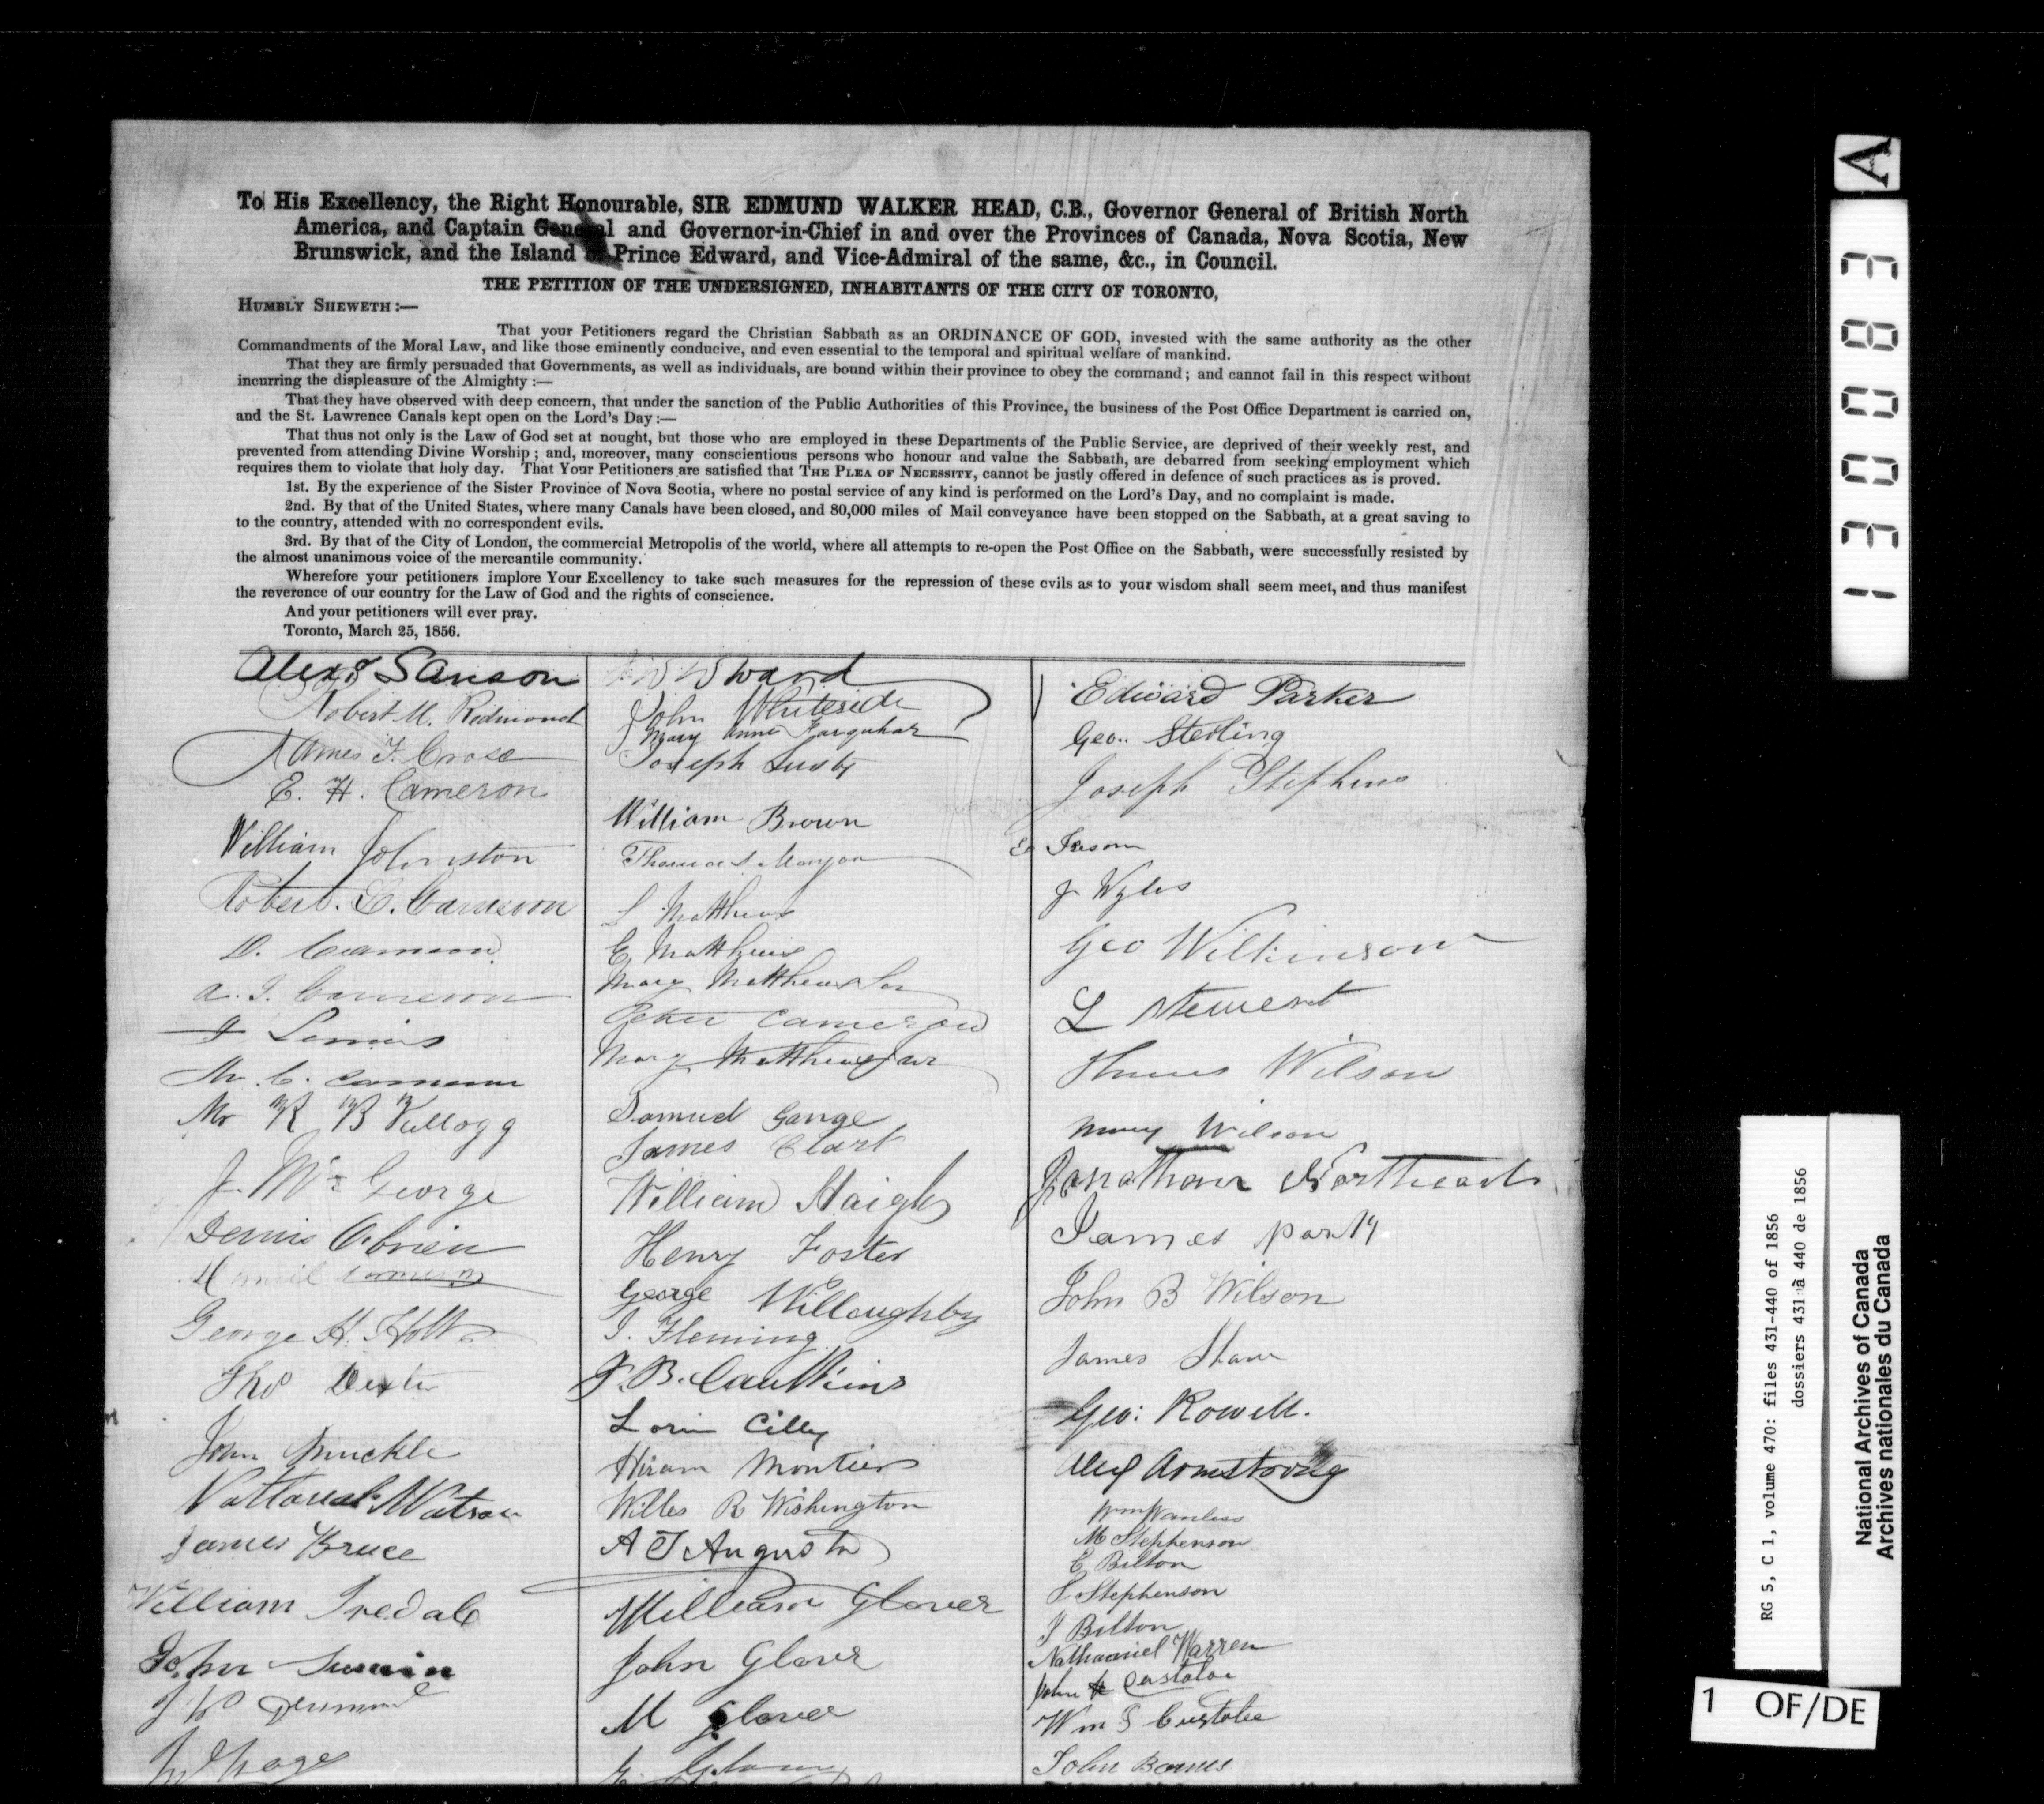 To His Excellency, the Right Honourable, SIR EDMUND WALKER HEAD, C.B., Governor General of British North
America, and Captain General and Governor-in-Chief in and over the Provinces of Canada, Nova Scotia, New
Brunswick, and the Island of Prince Edward, and Vice-Admiral of the same, &c., in Council.
THE PETITION OF THE UNDERSIGNED, INHABITANTS OF THE CITY OF TORONTO,
HUMBLY SHEWETH :—
That your Petitioners regard the Christian Sabbath as an ORDINANCE OF GOD, invested with the same authority as the other
Commandments of the Moral Law, and like those eminently conducive, and even essential to the temporal and spiritual welfare of mankind.
That they are firmly persuaded that Governments, as well as individuals, are bound within their province to obey the command; and cannot fail in this respect without
incurring the displeasure of the Almighty :—
That they have observed with deep concern, that under the sanction of the Public Authorities of this Province, the business of the Post Office Department is carried on,
and the St. Lawrence Canals kept open on the Lord's Day :—
That thus not only is the Law of God set at nought, but those who are employed in these Departments of the Public Service, are deprived of their weekly rest, and
prevented from attending Divine Worship ; and, moreover, many conscientious persons who honour and value the Sabbath, are debarred from seeking employment which
requires them to violate that holy day. That Your Petitioners are satisfied that THE PLEA OF NECESSITY, cannot be justly offered in defence of such practices as is proved.
1st. By the experience of the Sister Province of Nova Scotia, where no postal service of any kind is performed on the Lord's Day, and no complaint is made.
2nd. By that of the United States, where many Canals have been closed, and 80,000 miles of Mail conveyance have been stopped on the Sabbath, at a great saving to
to the country, attended with no correspondent evils.
3rd. By that of the City of London, the commercial Metropolis of the world, where all attempts to re-open the Post Office on the Sabbath, were successfully resisted by
the almost unanimous voice of the mercantile community.
Wherefore your petitioners implore Your Excellency to take such measures for the repression of these evils as to your wisdom shall seem meet, and thus manifest
the reverence of our country for the Law of God and the rights of conscience.
And your petitioners will ever pray.
Toronto, March 25, 1856.
Alexr Sanson
Robert M. Redmond
James F. Cross
E. H. Cameron
William Johnston
Robert. L. Cameron
D. Cameron
A. I. Cameron
M. C. Cameron
Mr R B Kellogg
J. Mc George
Dennis Obrien
Cameron
George H. Holt
Thos Dexter
John
Watson
James Bruce
William Iredale
John Swain
Ward
John Whiteside
Mary Anne Farquhar
Joseph Lusty
William Brown
Thomas Morgan
L Matthews
E Matthews
Mary Matthews Sr
Peter Cameron
Mary Matthews Jur
Samuel Gange
James Clark
William Haigh
Henry Foster
George Willoughby
I. Fleming
J. B. Caulkins
Lorin Cilley
Hiram Montier
Willes R Wishington
A T Augusta
William Glover
John Glover
M Glover
Glover
Edward Parker
Geo. Sterling
Joseph Stephens
J Wyles
Geo Wilkinson
L Stewart
Wilson
Mary Wilson
Jonathan Northcote
James party
John B Wilson
James Shaw
Geo: Rowell.
Alex Armstrong
Wm Wanless
M Stephenson
E Bilton
S Stephenson
J Bilton
Nathaniel Warren
John Custaloe
Wm S Custaloe
John Barnes
A
1 3 0 0 8 3
RG 5, C 1, volume 470: files 431-440 of 1856
dossiers 431 à 440 de 1856
National Archives of Canada
Archives nationales du Canada
1 OF/DE